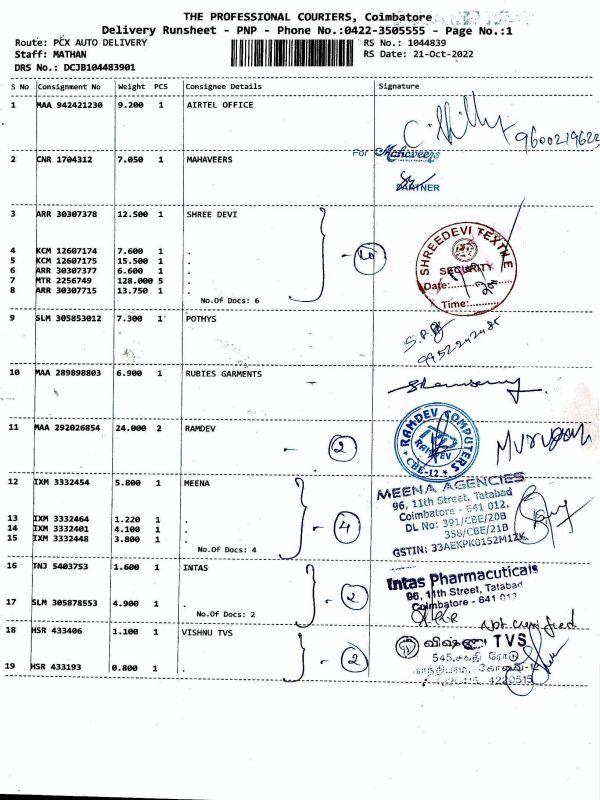 THE PROFESSIONAL COURIERS, Coimbatore
Delivery Runsheet - PNP - Phone No.:0422-3505555 - Page No.:1
Route: PCX AUTO DELIVERY
RS No.: 1044839
Staff: MATHAN
RS Date: 21-Oct-2022
DRS No.: DCJB104483901
S No Consignment No Weight PCS Consignee Details Signature
1 MAA 942421230 9.200 1 AIRTEL OFFICE
2 CNR 1704312 7.050 1 MAHAVEERS
For Mahaveers
PARTNER
3 ARR 30307378 12.500 1 SHREE DEVI
4 KCM 12607174 7.600 1 .
5 KCM 12607175 15.500 1 .
6 ARR 30307377 6.600 1 .
7 MTR 2256749 128.000 5 .
8 ARR 30307715 13.750 1 .
No.Of Docs: 6
- 10
SHREEDEVI TEXTILE
SECURITY
Date:
Time:
9 SLM 305853012 7.300 1 POTHYS
9952242485
10 MAA 289898803 6.900 1 RUBIES GARMENTS
11 MAA 292026854 24.000 2 RAMDEV
- 2
RAMDEV COMPUTERS
RAMDEV
CBE-12
12 IXM 3332454 5.800 1 MEENA
13 IXM 3332464 1.220 1 .
14 IXM 3332401 4.100 1 .
15 IXM 3332448 3.800 1 .
No.Of Docs: 4
- 4
MEENA AGENCIES
96, 11th Street, Tatabad
Coimbatore - 641 012.
DL No: 391/CBE/20B
358/CBE/21B
GSTIN: 33AEKPK0152M1ZK
16 TNJ 5403753 1.600 1 INTAS
17 SLM 305878553 4.900 1 .
No.Of Docs: 2
- 2
Intas Pharmacuticals
96, 11th Street, Tatabad
Coimbatore - 641 012
Not verified
18 HSR 433406 1.100 1 VISHNU TVS
19 HSR 433193 0.800 1 .
- 2
விஷ்ணு TVS
545, சக்தி ரோடு
காந்திபுரம், கோவை-12
4220515